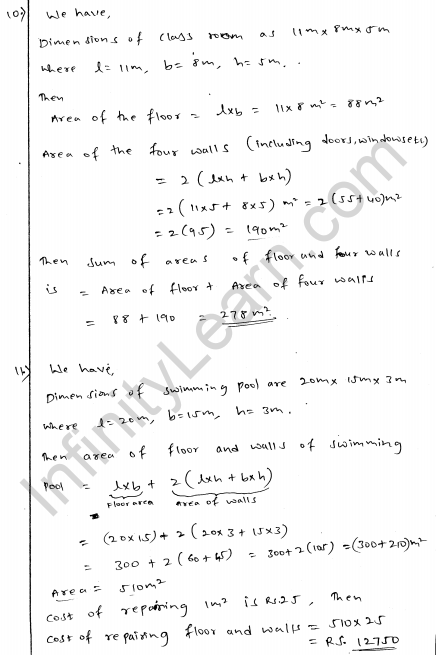 10) We have,
Dimensions of class room as 11m x 8m x 5m
where l = 11m, b = 8m, h = 5m.
Then
Area of the floor = lxb = 11x8 m² = 88m²
Area of the four walls (including doors, windows etc)
= 2 (lxh + bxh)
= 2 (11x5 + 8x5) m² = 2 (55+40)m²
= 2 (95) = 190m²
Then sum of areas of floor and four walls
is = Area of floor + Area of four walls
= 88 + 190 = 278m².
We have,
Dimensions of swimming pool are 20m x 15m x 3m
where l = 20m, b = 15m, h = 3m.
Then area of floor and walls of swimming
pool = lxb + 2 (lxh + bxh)
Floor area Area of walls
= (20x15) + 2 (20x3 + 15x3)
= 300 + 2 (60 + 45) = 300+2 (105) = (300+210)m²
Area = 510m²
Cost of repairing 1m² is Rs.25, Then
Cost of repairing floor and walls = 510x25
= RS. 12750
InfinityLearn.com